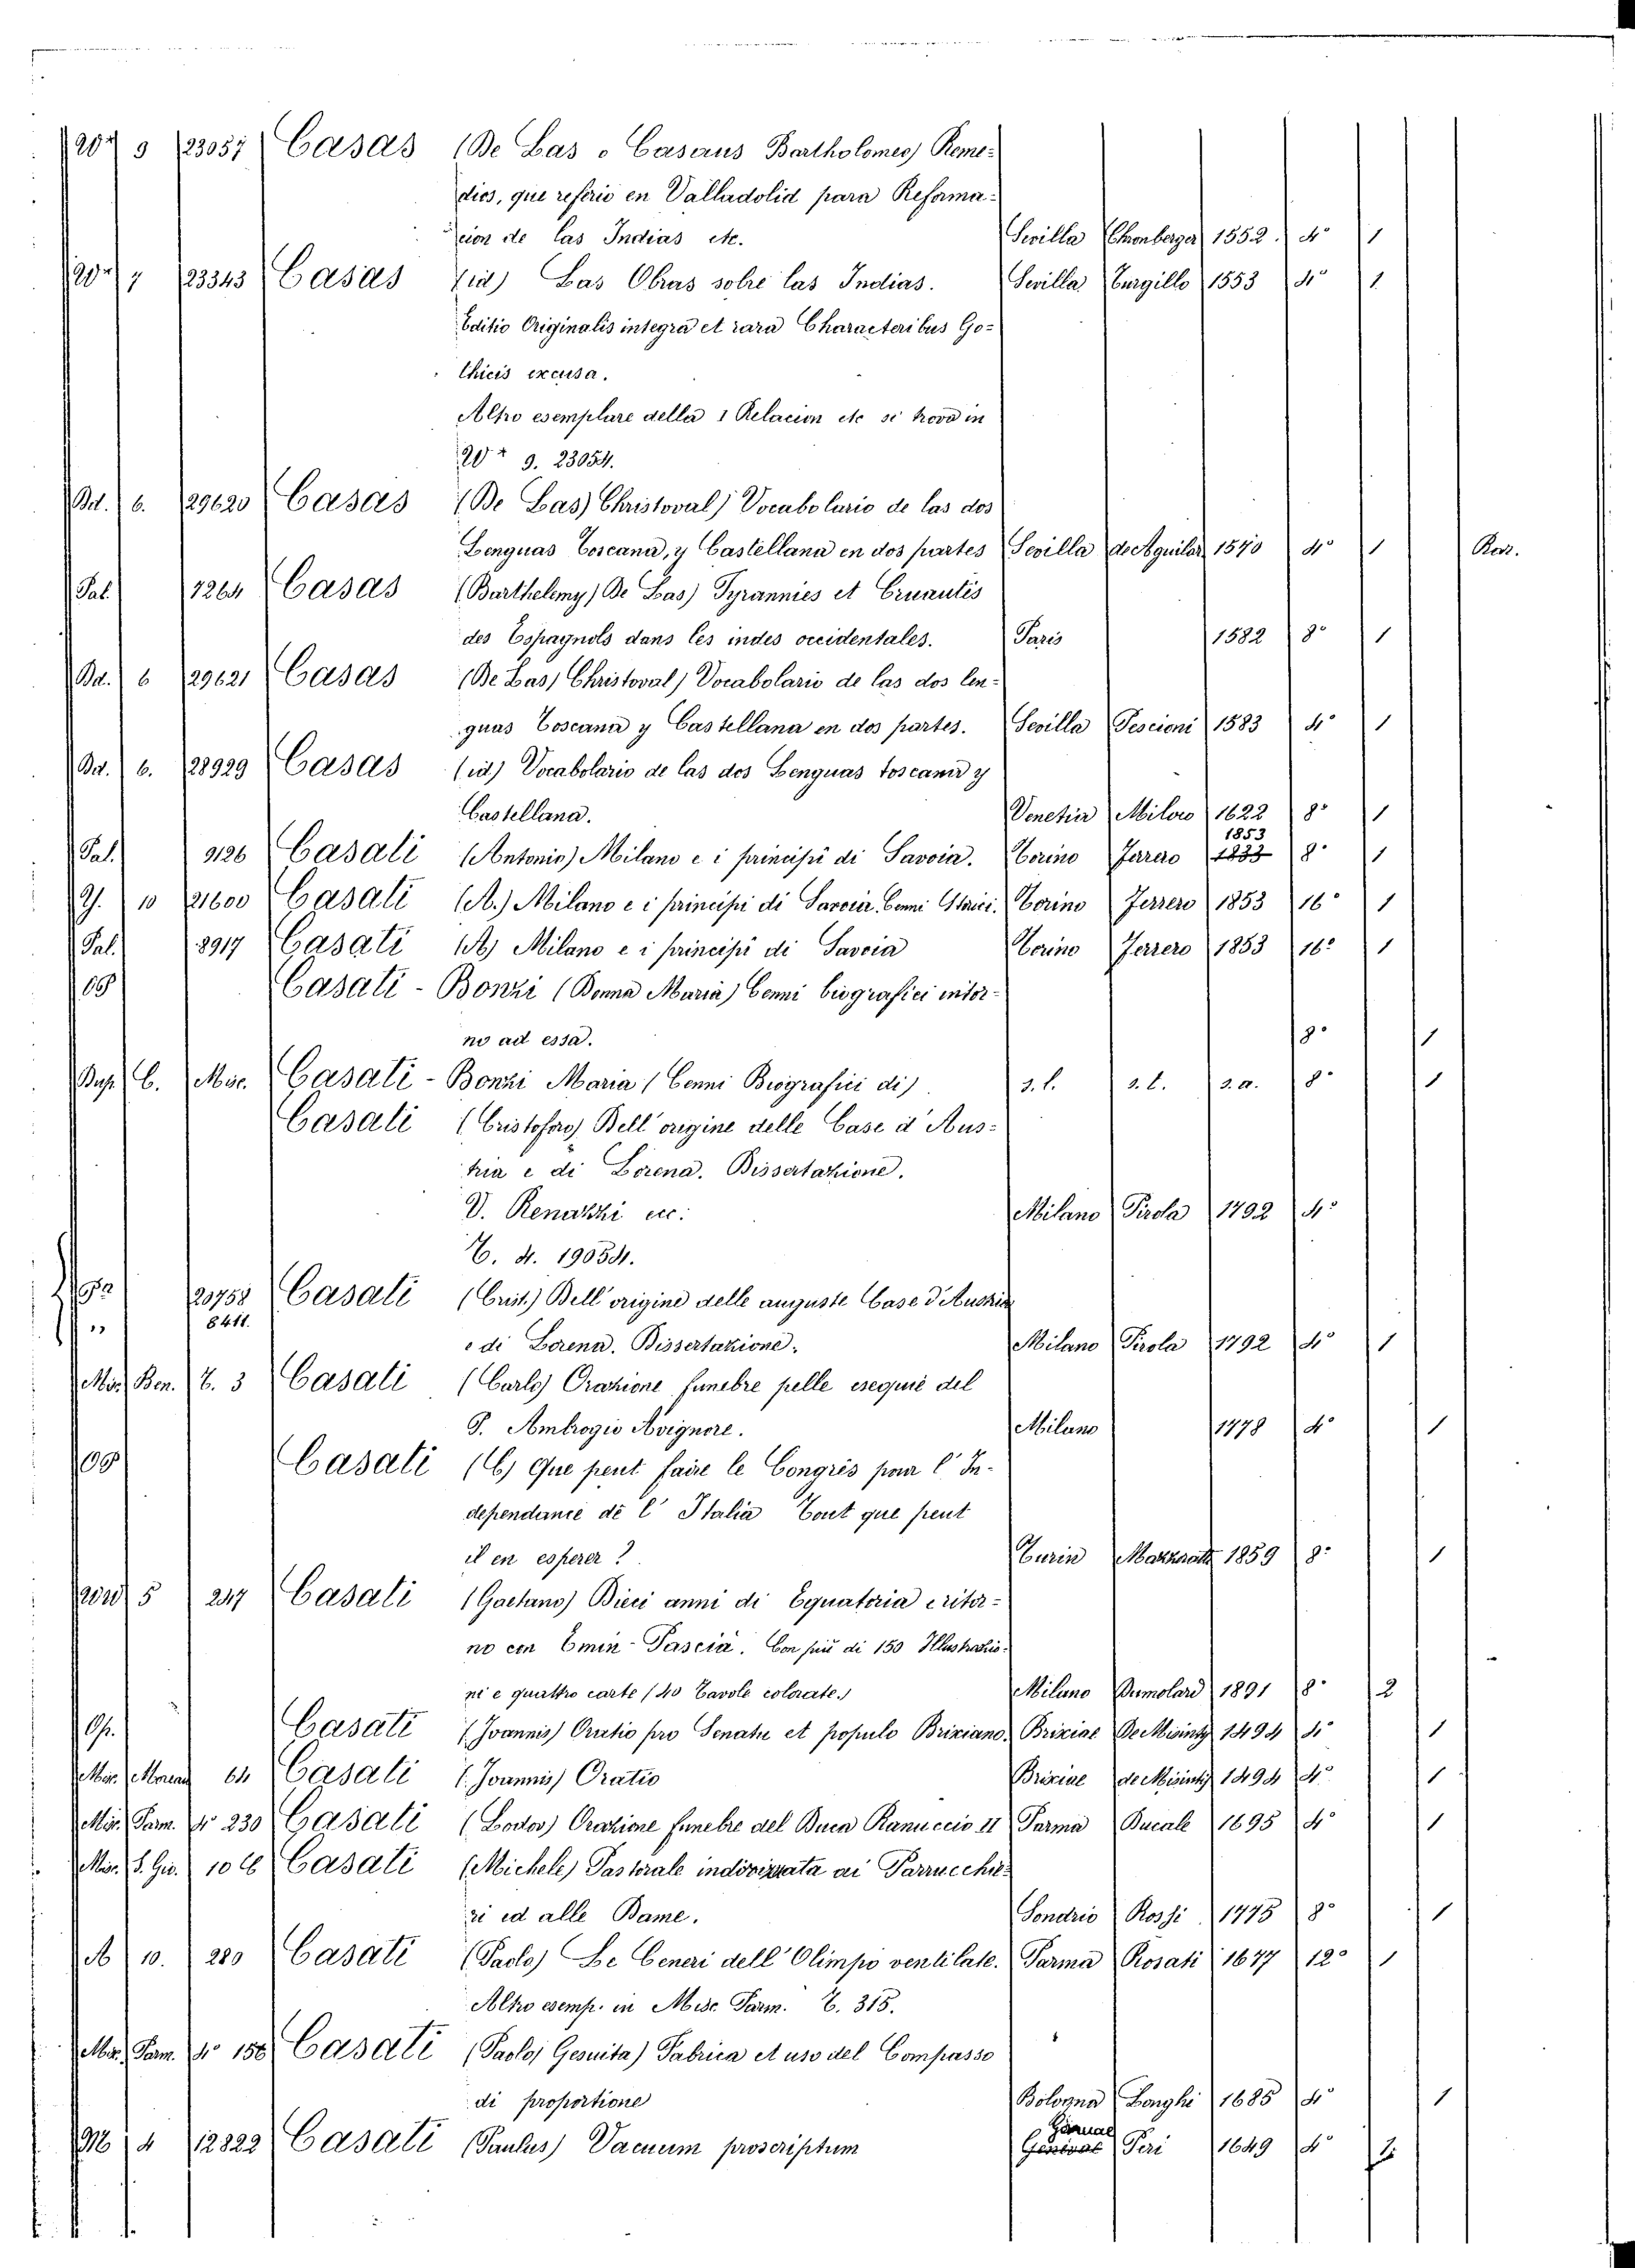 20+ 9 23057 Casas (De Las o Casaus Bartholomeo) Reme-
dios, que referio en Valladolid para Reforma-
cion de las Indias etc. Sevilla 1552. 4° 1
20+ 7 23343 Casas (id) Las Obras sobre las Indias. Sevilla 1553 4° 1
Editio Originalis integra et rara Characteribus Go-
thicis excusa.
Altro esemplare della 1 Relacion etc si trova in
20+ 9. 23054.
6. 29620 Casas (De Las) Christoval) Vocabolario de las dos
Lenguas Toscana, y Castellana en dos partes Sevilla de Aguilar 1570 4° 1
Pal. 7264 Casas (Barthelemy) De Las) Tyrannies et Cruautés
des Espagnols dans les indes occidentales. Paris 1582 8° 1
6 29621 Casas (De Las) Christoval) Vocabolario de las dos len-
guas Toscana y Castellana en dos partes. Sevilla Pescioni 1583 4° 1
6. 28929 Casas (id) Vocabolario de las dos Lenguas toscana y
Castellana. Venetia Miloco 1622 8° 1
1853
Pal. 9126 Casati (Antonio) Milano e i principi di Savoia. Torino 1833 8° 1
10 21600 Casati (A.) Milano e i principi di Savoia. Cenni Storici. Torino Ferrero 1853 16° 1
Pal. 8917 Casati (A) Milano e i principi di Savoia Torino Ferrero 1853 16° 1
Casati - Bonzi (Donna Maria) Cenni biografici intor-
no ad essa. 8° 1
C. Misc. Casati - Bonzi Maria (Cenni Biografici di) s. l. s. l. s. a. 8° 1
Casati (Cristoforo) Dell' origine delle Case d' Aus-
tria e di Lorena. Dissertazione.
V. Renazzi ecc: Milano Pirola 1792 4°
C. 4. 19054.
20758 Casati (Crist.) Dell' origine delle auguste Case d'Austria
8411.
e di Lorena. Dissertazione. Milano Pirola 1792 4° 1
Misc. Ben. C. 3 Casati (Carlo) Orazione funebre pelle esequie del
S. Ambrogio Avignore. Milano 1778 4° 1
Casati (C) Que peut faire le Congrès pour l' In-
dependance de l' Italia Tout que peut
il en esperer? Turin 1859 8° 1
5 247 Casati (Gaetano) Dieci anni di Equatoria e ritor-
no con Emin-Pascià. Con più di 150 Illustrazio-
ni e quattro carte (40 Tavole colorate.) Milano Dumolard 1891 8° 2
Casati (Joannis) Oratio pro Senatu et populo Brixiano. Brixiae De Misintis 1494 4° 1
Misc. Moreau 64 Casati (Joannis) Oratio Brixiae de Misintis 1494 4° 1
Misc. Parm. 4° 230 Casati (Lodov) Orazione funebre del Duca Ranuccio II Parma Ducale 1695 4° 1
Misc. S. Giv. 106 Casati (Michele) Pastorale indirizzata ai Parrucchie-
ri ed alle Dame. Sondrio Rossi 1775 8° 1
A 10. 280 Casati (Paolo) Le Ceneri dell' Olimpo ventilate. Parma Rosati 1677 12° 1
Altro esemp. in Misc. Parm. C. 315.
Misc. Parm. 4° 158 Casati (Paolo) Gesuita) Fabrica et uso del Compasso
di proportione Bologna Longhi 1685 4° 1
4 12822 Casati (Paulus) Vacuum proscriptum Peri 1649 4° 2